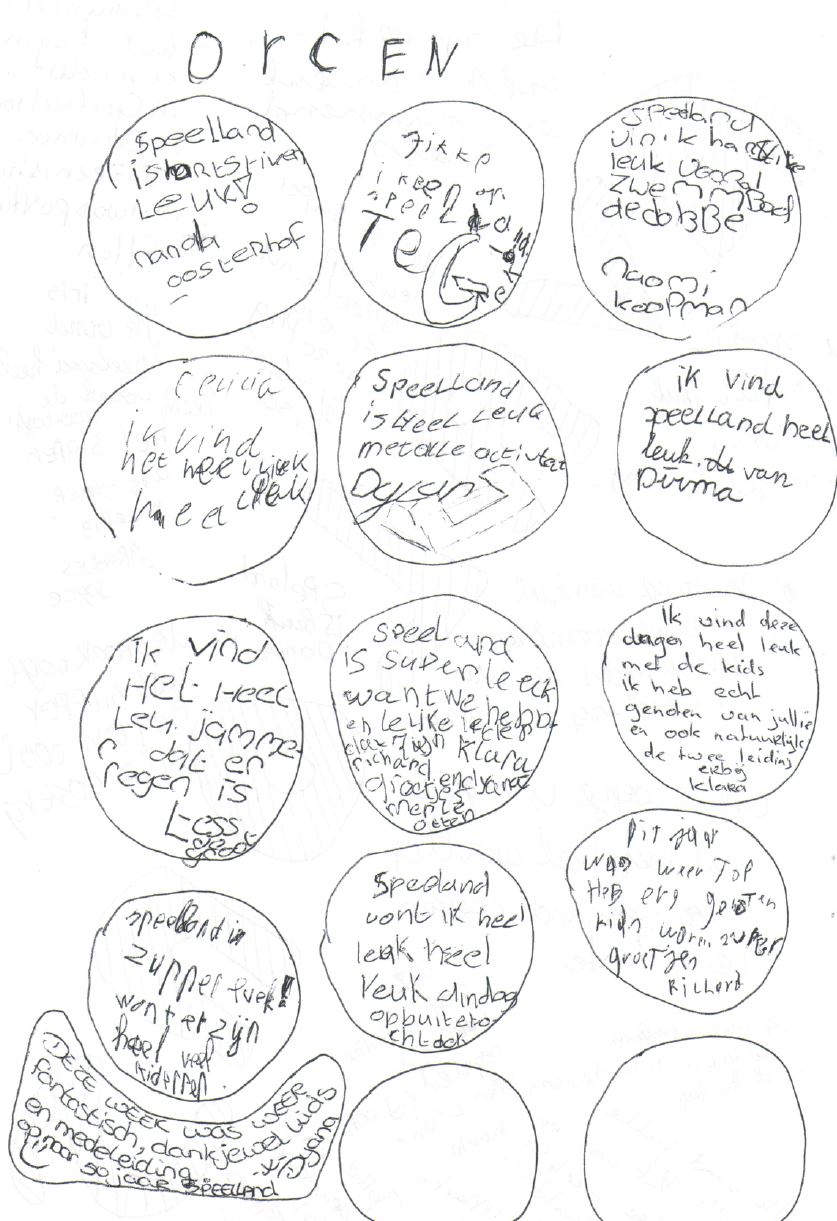 OrCEN
Speelland
is
LEUK!
nanda
oosterhof
Jikke
ik ben op
speelland
TE GEK
Speelland
vin ik
leuk
zwemmBad
dedoBBe
Naomi
koopman
Cecicia
ik vind
het heel
heel leuk
SPEELLAND
is Heel LEUk
met alle activiteit
ik vind
speelLand heel
leuk. van
ik vind
HeT HEEL
Leu. jamme
dat er
regen is
Tess
groot
speeland
is super leuk
want we hebb
en leuke leiders
daar zijn klara
richard
groetjes
merle
otten
Ik vind deze
dagen heel leuk
met de kids
ik heb echt
genoten van jullie
en ook natuurlijk
de twee leiding
erbij
klara
speelland is
zupper leuk!
want er zijn
heel veel
kideren
Speeland
vont ik heel
leuk heel
leuk dindag
opbuitero
chtdok
Dit jaar
was weer Top
Heb erg genoten
kids waren super
groetjes
Richard
Deze week was weer
fantastisch, dankjewel kids
en medeleiding
op naar 50 jaar SPEELLAND